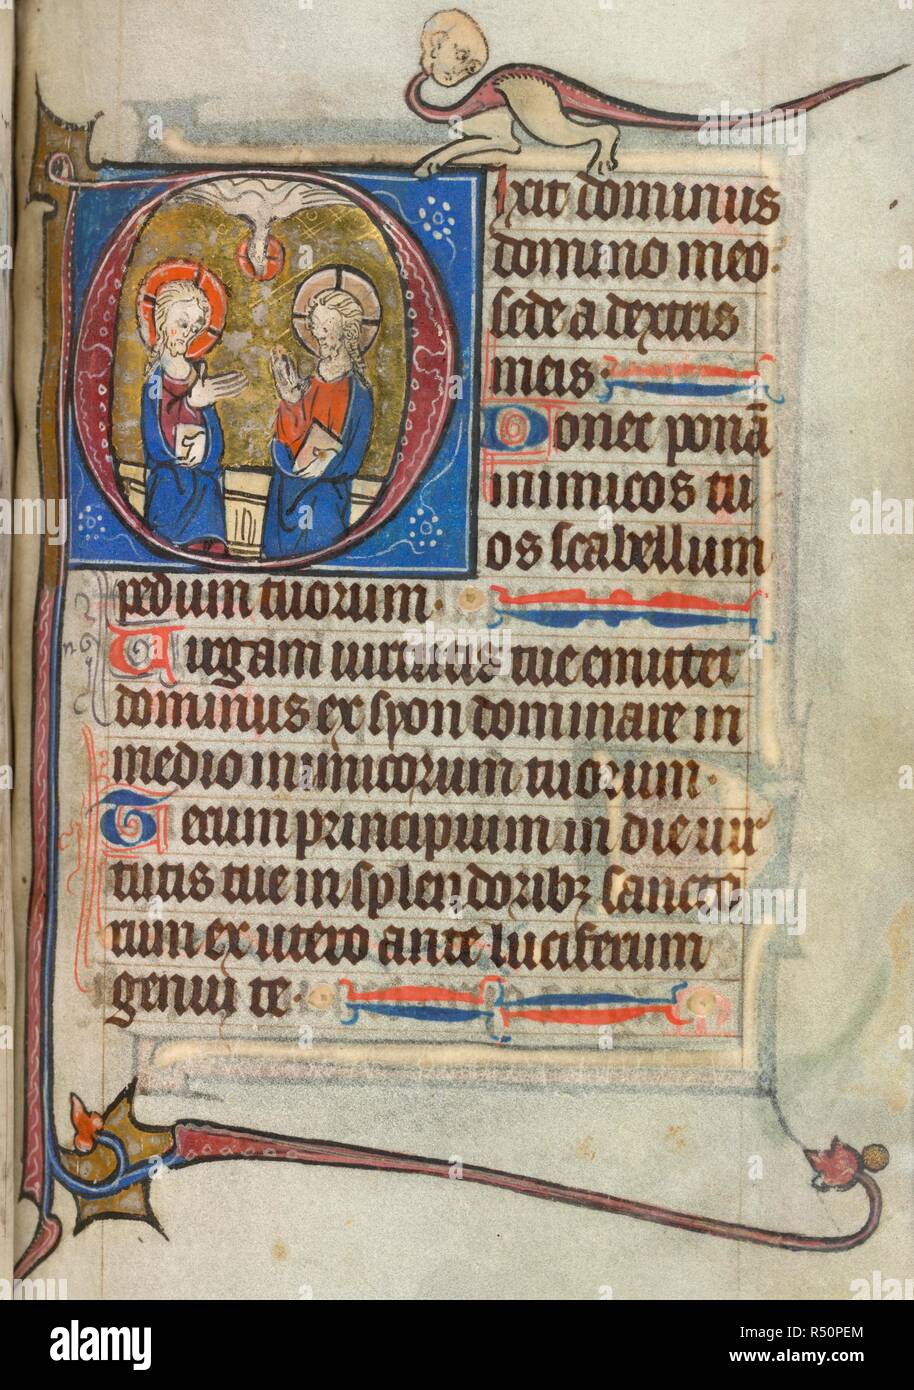 Dixit dominus
domino meo.
sede a dextris
meis.
Donec ponā
inimicos tu
os scabellum
pedum tuorum.
Uirgam uirtutis tue emittet
dominus ex syon dominare in
medio inimicorum tuorum.
Tecum principium in die uir
tutis tue in splendoribꝫ sancto
rum ex utero ante luciferum
genui te.
alamy
Image ID: R50PEM
www.alamy.com